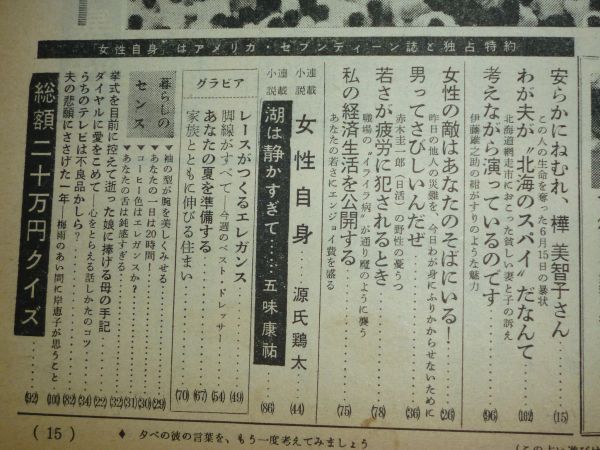 「女性自身」はアメリカ・セブンティーン誌と独占特約
安らかにねむれ、樺 美智子さん (15)
この人の生命を奪った6月15日の暴状
わが夫が“北海のスパイ”だなんて (102)
北海道網走市におこった貧しい妻と子の訴え
考えながら演っているのです (96)
伊藤雄之助の紺がすりのような魅力
女性の敵はあなたのそばにいる! (26)
昨日の他人の災難を、今日わが身にふりかからせないために
男ってさびしいんだぜ (36)
赤木圭一郎(日活)の野性の憂うつ
若さが疲労に犯されるとき (78)
職場の“イライラ病”が通り魔のように襲う
私の経済生活を公開する (75)
あなたの若さにエンジョイ費を盛る
連載小説 女性自身 源氏鶏太 (44)
連載小説 湖は静かすぎて…… 五味康祐 (86)
グラビア
レースがつくるエレガンス (49)
脚線がすべて―今週のベスト・ドレッサー (54)
あなたの夏を準備する (67)
家族とともに伸びる住まい (70)
暮らしのセンス
▼袖の型が腕を美しくみせる (29)
▼あなたの一日は20時間! (30)
▼コーヒー色はエレガンスか? (31)
▼あなたの舌は鈍感すぎる (32)
挙式を目前に控えて逝った娘に捧げる母の手記 (22)
ダイヤルに愛をこめて―心をとらえる話しかたのコツ (34)
うちのテレビは不良品かしら? (82)
夫の悲願にささげた一年― 梅雨のあい間に岸恵子が思うこと (100)
総額二十万円クイズ (92)
(15)
◆ 夕べの彼の言葉を、もう一度考えてみましょう